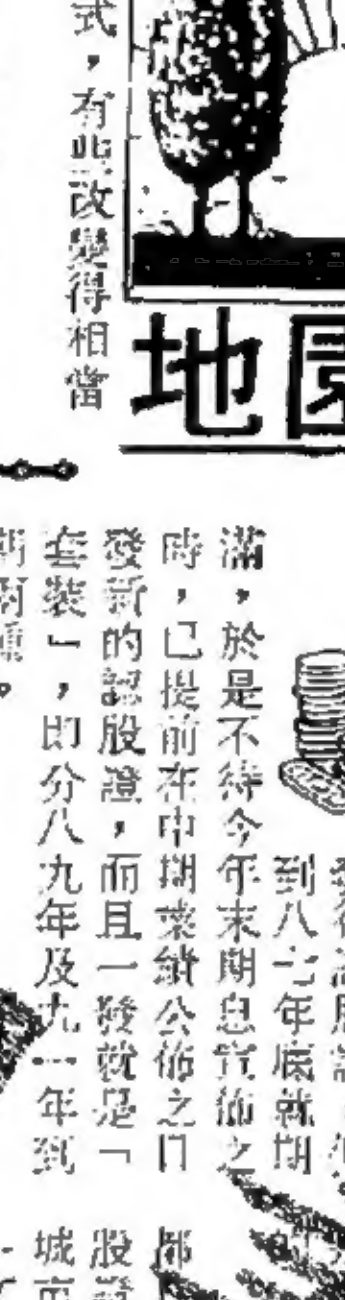 式，有些改變得相當
地園
到八七年底就期
滿，於是不待今年末期息宣佈之
時，已提前在中期業績公佈之日
發新的認股證，而且一發就是「
套裝」，即分八九年及九一年到
期兩種。
都
股證
城市